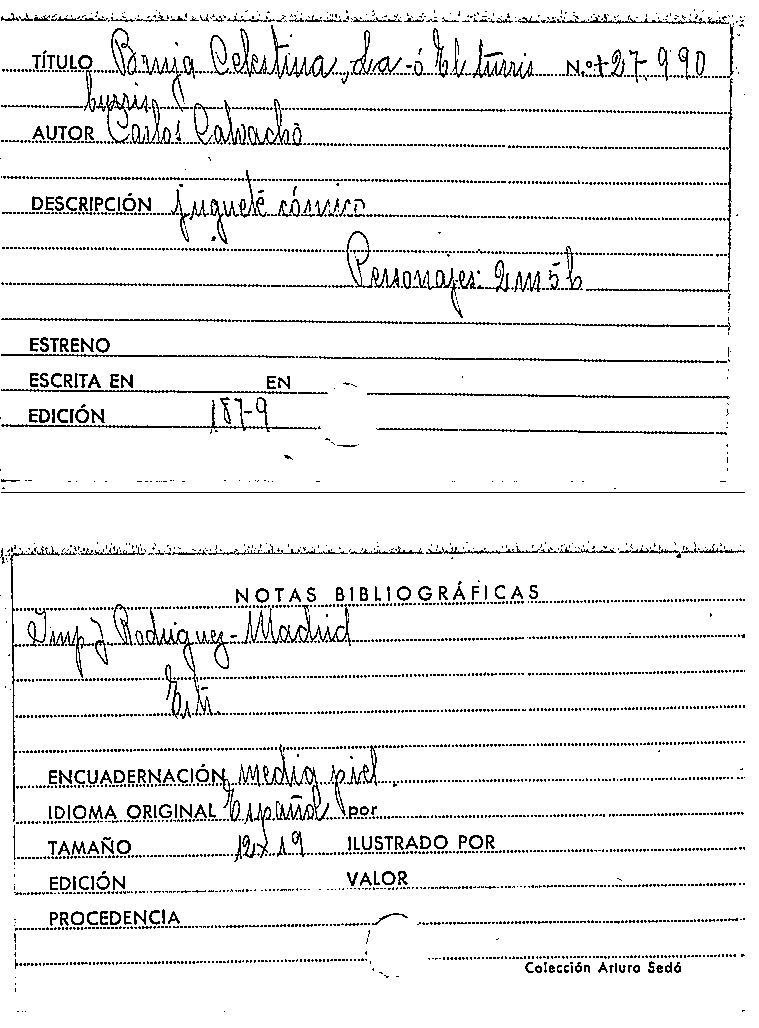 TÍTULO Bruja Celestina, La - ó El turris N.º + 27-990
burris
AUTOR Carlos Calvacho
DESCRIPCIÓN juguete cómico
Personajes: 2 m 5 h
ESTRENO
ESCRITA EN EN
EDICIÓN 187-9
NOTAS BIBLIOGRÁFICAS
Imp J Rodriguez - Madrid
ENCUADERNACIÓN media piel.
IDIOMA ORIGINAL Español por
TAMAÑO 12x19 ILUSTRADO POR
EDICIÓN VALOR
PROCEDENCIA
Colección Arturo Sedó